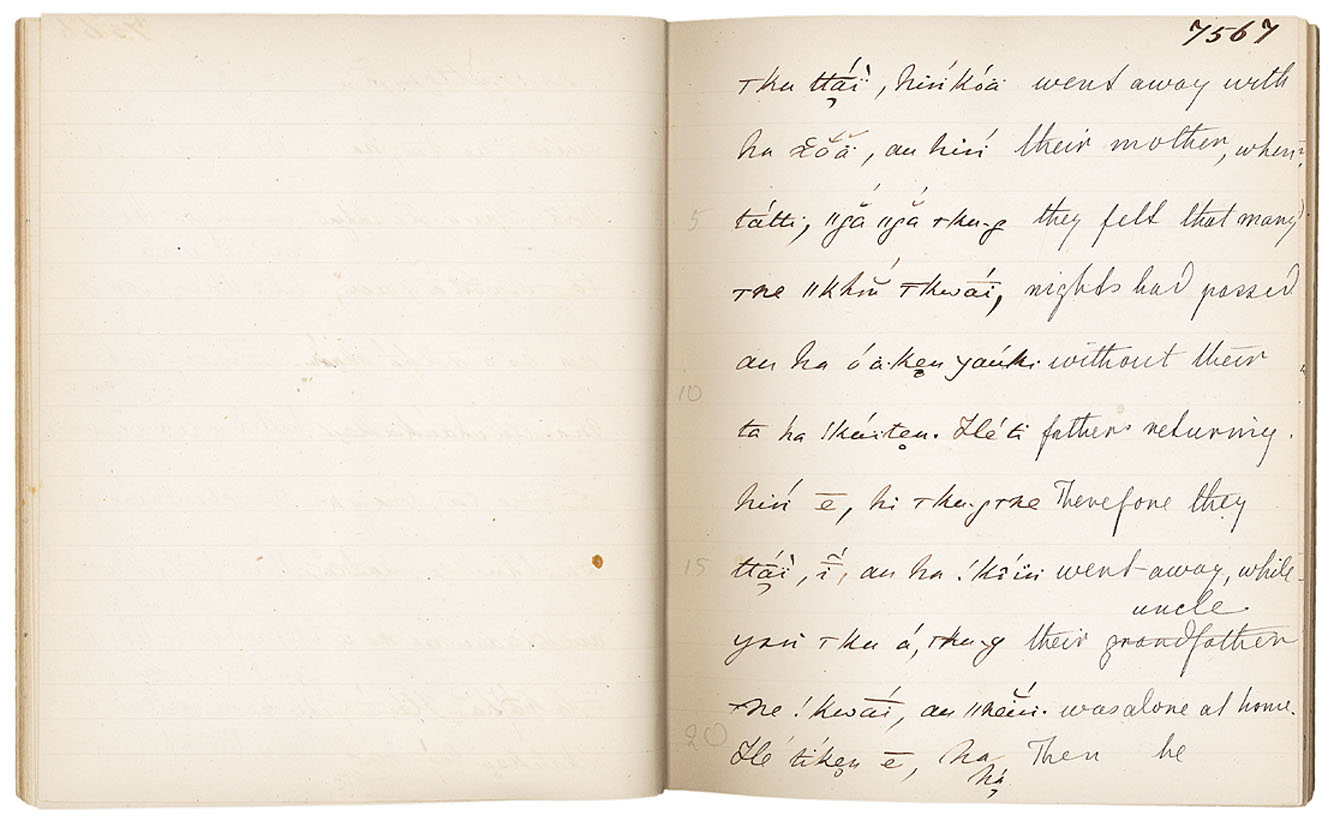 7567
ꞇku ttáï, hiń kóä went away with
ha xŏ́ä, au hiń their mother, when
5 tátti, ‖gā́ ‖gā́ ꞇku-g they felt that many
ꞇne ‖khū́ ꞇkwāí, nights had passed
au ha óä-ken yaúki without their
10
ta ha !kúïten. Hé ti father's returning.
hiń ē, hi ꞇku-g ꞇne Therefore they
15 ttáï, ī́, au ha !kṓïń went away, while
uncle
yań ꞇku á, ꞇku-g their grandfather
ꞇne !kwāí, au ‖neiń. was alone at home.
20 Hé tíken ē, ha Then he
há